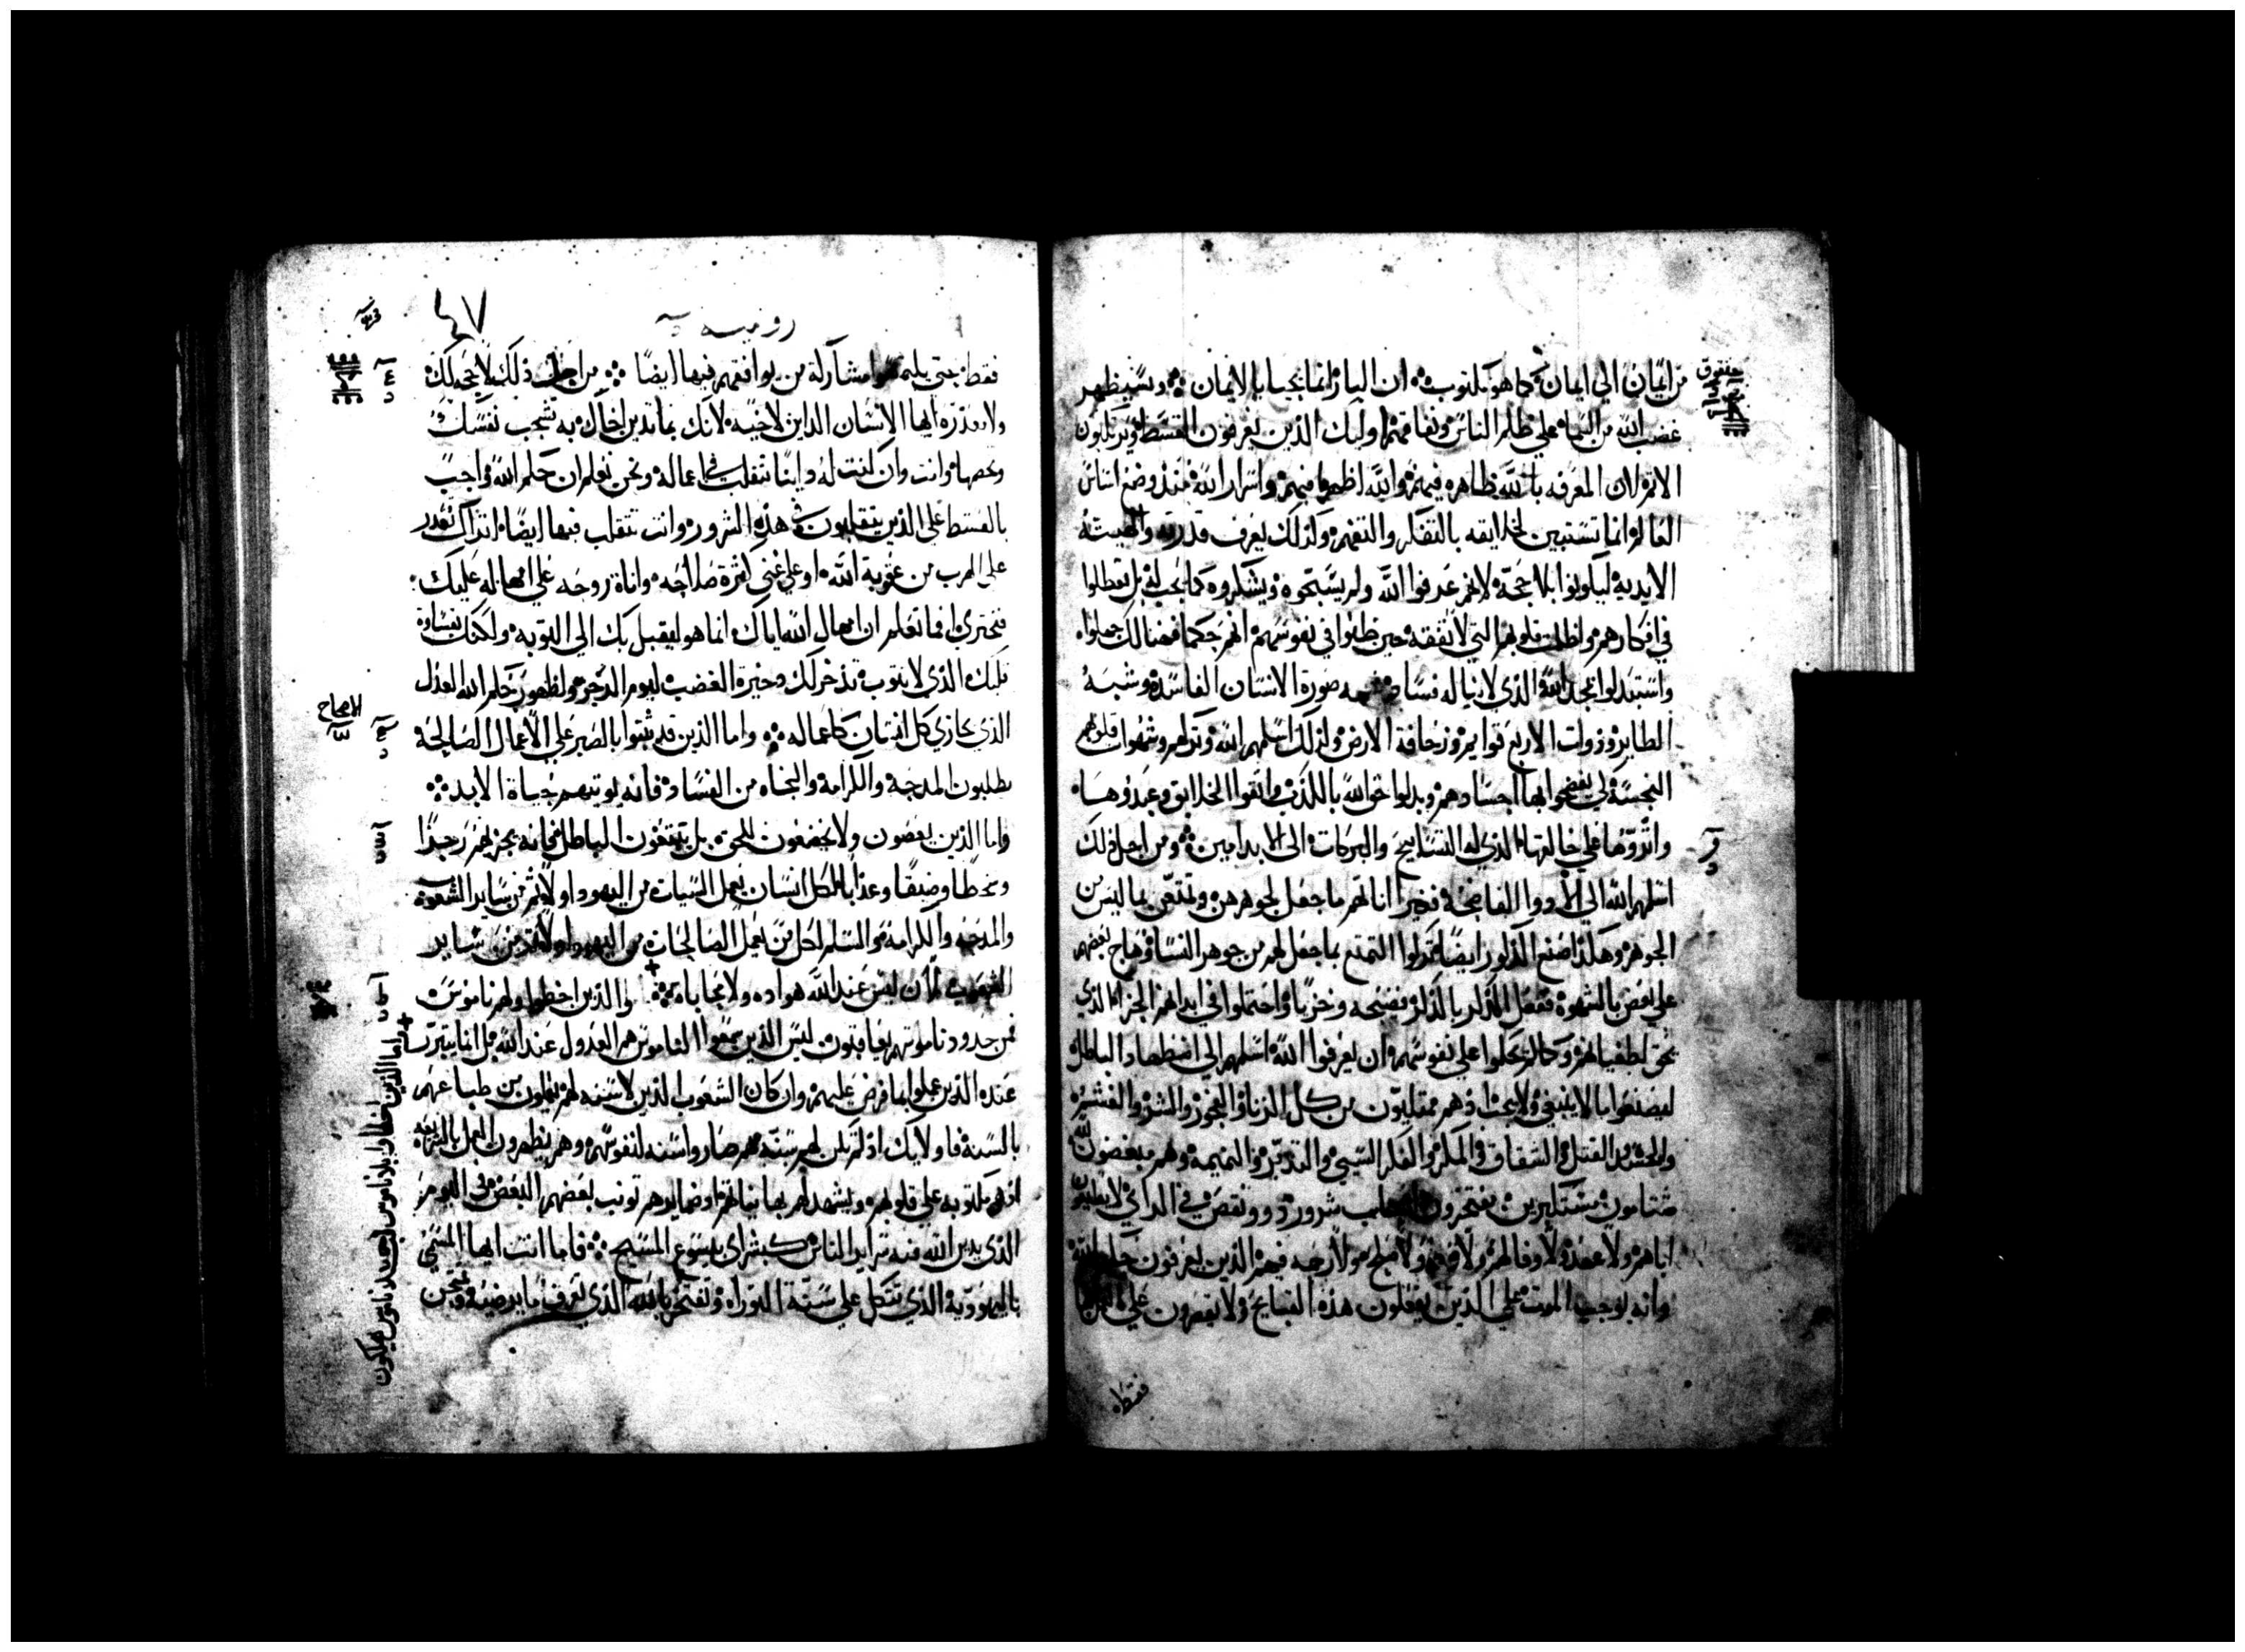 حبقوق
من ايمان الي ايمان كما هو مكتوب ان البار انما يحيا بالايمان وسيظهر
غضب الله من السماء علي ظلم الناس ونفاقهم اوليك الذين يعرفون القسط ويرتكبون
الاثم لان المعرفه بالله ظاهره فيهم والله اظهرها فيهم واسرار الله منذ وضع اساس
العالم انما تستبين لخلايقه بالتفكر والتفهم وكذلك يعرف قدرته والهيته
الابدية ليكونوا بلا حجة لانهم عرفوا الله ولم يسبحوه ويشكروه كما يجب له بل تعطلوا
في افكارهم واظلمت قلوبهم التي لا تفقه حين ظنوا في نفوسهم انهم حكما فهنالك جهلوا
واستبدلوا بمجد الله الذي لا يناله فساد صورة الانسان الفاسده وشبه
الطاير وذوات الاربع قوايم وزحافة الارض ولذلك اسلمهم الله وتركهم وشهوات قلوبهم
النجسة لكي يفضحوا بها اجسادهم وبدلوا حق الله بالكذب واتقوا الخلايق وعبدوها
واثروها علي خالقها الذي له التسابيح والبركات الي الابد امين ومن اجل ذلك
اسلمهم الله الي الادوا الفاضحة فغير اناثهم ما جعل لجوهرهن وتمتعن بما ليس من
الجوهر وهكذا صنع الذكور ايضا تركوا التمتع بما جعل لهم من جوهر النسا وهاج بعضهم
علي بعض بالشهوة ففعل الذكر بالذكر فضيحه وخزيا واحتملوا في ابدانهم الجزا الذي
يحق لطغيانهم وكما لم يحكموا علي نفوسهم ان يعرفوا الله اسلمهم الي اضطهاد الباطل
ليصنعوا ما لا ينبغي ولا يجب اذ هم ممتليون من كل الزنا والفجور والشر والغشم
والحسد والقتل والشقاق والمكر والفكر السيي والتدمر والنميمه وهم مبغضون لله
شتامون مستكبرين مفتخرون شرور ذوو نقص في الراي لا يطيعون
اباهم ولا عهد ولا وفا لهم ولا ولا صلح ولا رحمه فيهم الذين يعرفون حكم الله
وانه يوجب الموت علي الذين يفعلون هذه القبايح ولا يقصرون علي
فقط
٤٧
رومية
فقط حتي يلتمسوا مشاركة من يوافقهم فيها ايضا من اجل ذلك لا حجة لك
ولا معذرة ايها الانسان الداين لاخيه لانك بما تدين اخاك به تشجب نفسك
وتخصها وانت وان كنت له داينا تتقلب في اعماله ونحن نعلم ان حكم الله واجب
بالقسط علي الذين يتقلبون في هذه الشرور وانت تتقلب فيها ايضا اتراك تقدر
علي الهرب من عقوبة الله او علي غني كثرة صلاحه واناة روحه علي امهاله عليك
تجتري فما تعلم ان امهال الله اياك انما هو ليقبل بك الي التوبه ولكنك بقساوة
قلبك الذي لا يتوب تذخر لك دخيرة الغضب ليوم الرجز ولظهور حكم الله العدل
الذي يجازي كل انسان كاعماله واما الذين قد ثبتوا بالصبر علي الاعمال الصالحة
الاصحاح
يطلبون المدحة والكرامة والنجاه من الفساد فانه يوتيهم حياة الابد
واما الذين يعصون ولا يخضعون للحق بل يتبعون الباطل فانه يجزيهم رجزا
وسخطا وضيقا وعذابا لكل انسان يعمل السيات من اليهود اولا ثم من ساير الشعوب
والمدحه والكرامة والسلم لكل من يعمل الصالحات من اليهود اولا ثم من ساير
الشعوب لان ليس عند الله هواده ولا محاباه والذين اخطوا ولهم ناموس
فمن حدود ناموسهم يعاقبون ليس الذين سمعوا الناموس هم العدول عند الله بل انما يتبرر
عنده الذين عملوا بما فرض عليهم وان كان الشعوب الذين لا سنه لهم يعملون من طباعهم
بالسنة فاوليك اذ لم تكن لهم سنة صاروا سنه لنفوسهم وهم يظهرون العمل بالشريعه
اذ هو مكتوبه علي قلوبهم ويشهد لهم بها نياتهم اوضمايرهم توبب بعضهم البعض في اليوم
الذي يدين الله فيه سراير الناس كبشراي بيسوع المسيح فاما انت ايها المسمي
باليهودية الذي تتكل علي سنة التوراه وتفتخر بالله الذي تعرف ما يرضيه وتمتحن
اما الذين اخطاوا بلا ناموس فبغير ناموس يهلكون